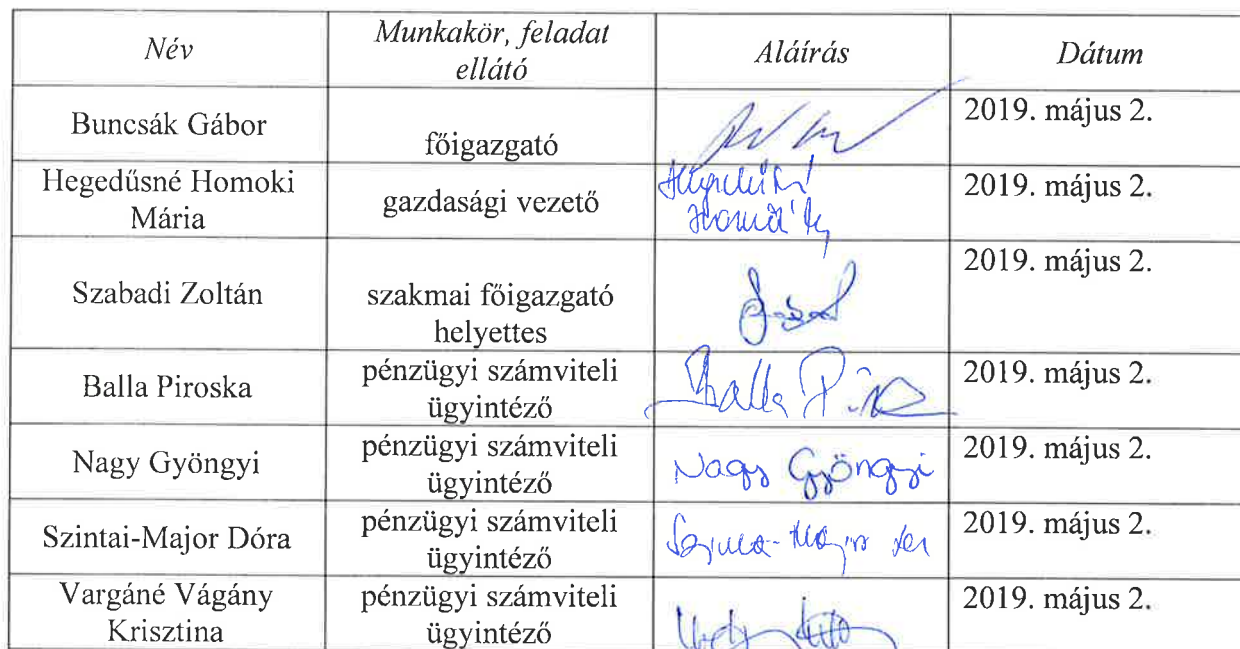 Név
Munkakör, feladat
ellátó
Aláírás
Dátum
Buncsák Gábor
főigazgató
2019. május 2.
Hegedűsné Homoki
Mária
gazdasági vezető
2019. május 2.
Szabadi Zoltán
szakmai főigazgató
helyettes
2019. május 2.
Balla Piroska
pénzügyi számviteli
ügyintéző
Balla
2019. május 2.
Nagy Gyöngyi
pénzügyi számviteli
ügyintéző
Nagy Gyöngyi
2019. május 2.
Szintai-Major Dóra
pénzügyi számviteli
ügyintéző
2019. május 2.
Vargáné Vágány
Krisztina
pénzügyi számviteli
ügyintéző
2019. május 2.